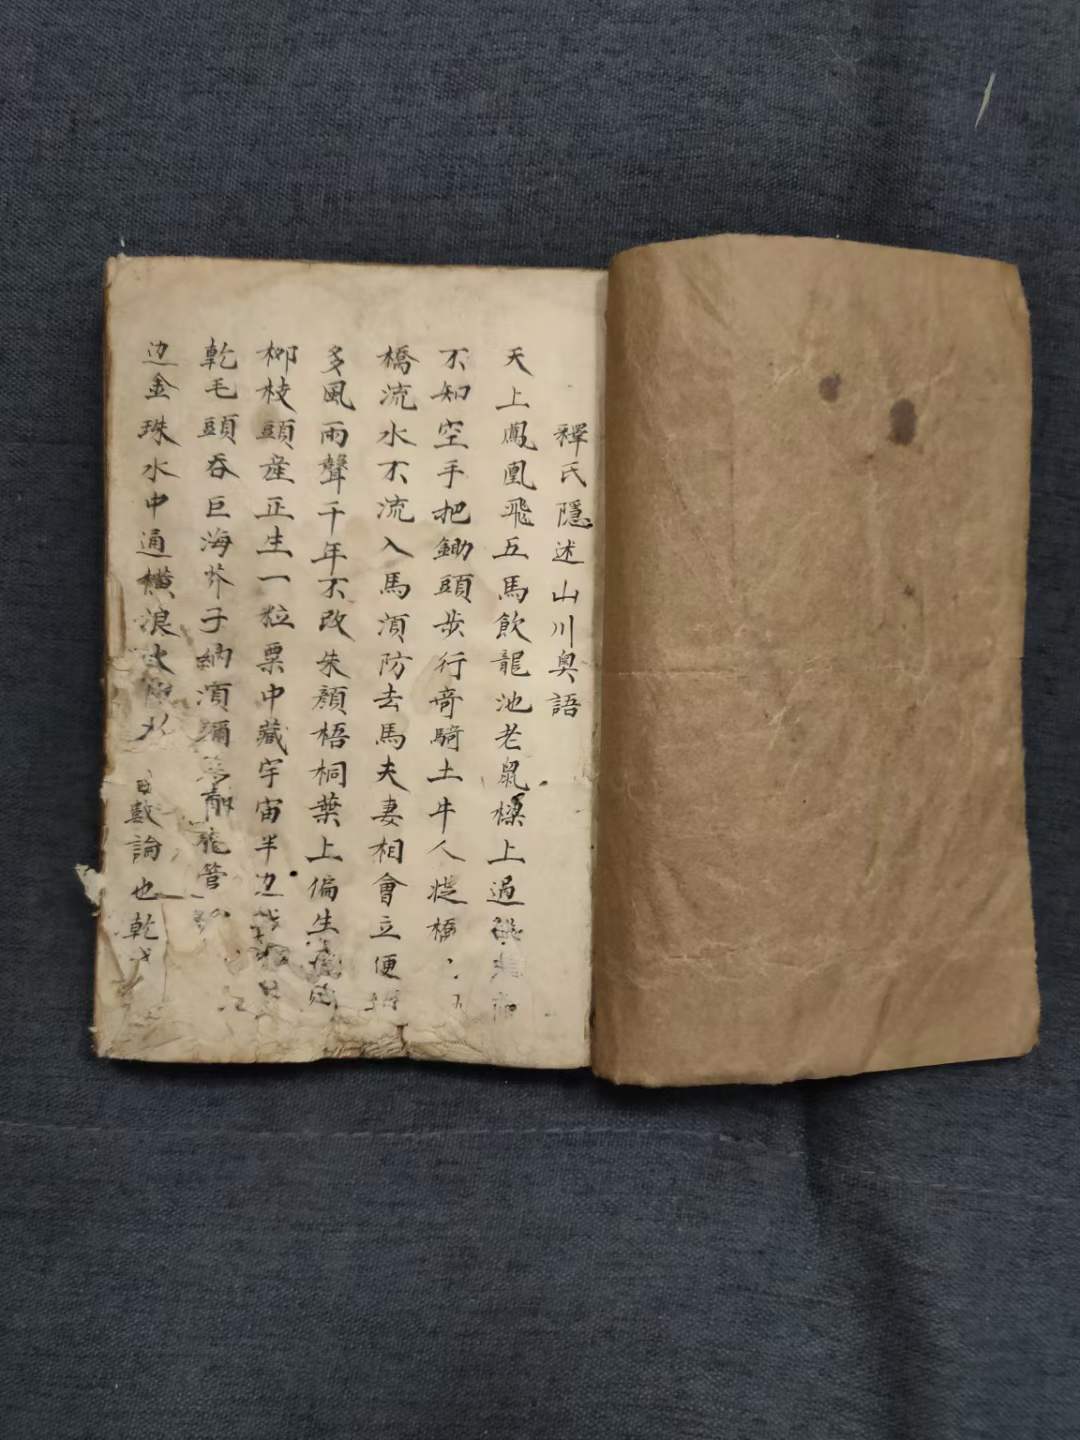 釋氏隱述山川奧語
天上鳳凰飛五馬飲龍池老鼠樑上過
不知空手把鋤頭步行奇騎土牛人從橋
橋流水不流入馬湏防去馬夫妻相會立便
多風雨聲千年不改朱顏梧桐葉上偏生
柳枝頭産正生一粒粟中藏宇宙半边
乾毛頭吞巨海芥子納湏彌
边金珠水中通横浪
數論也乾